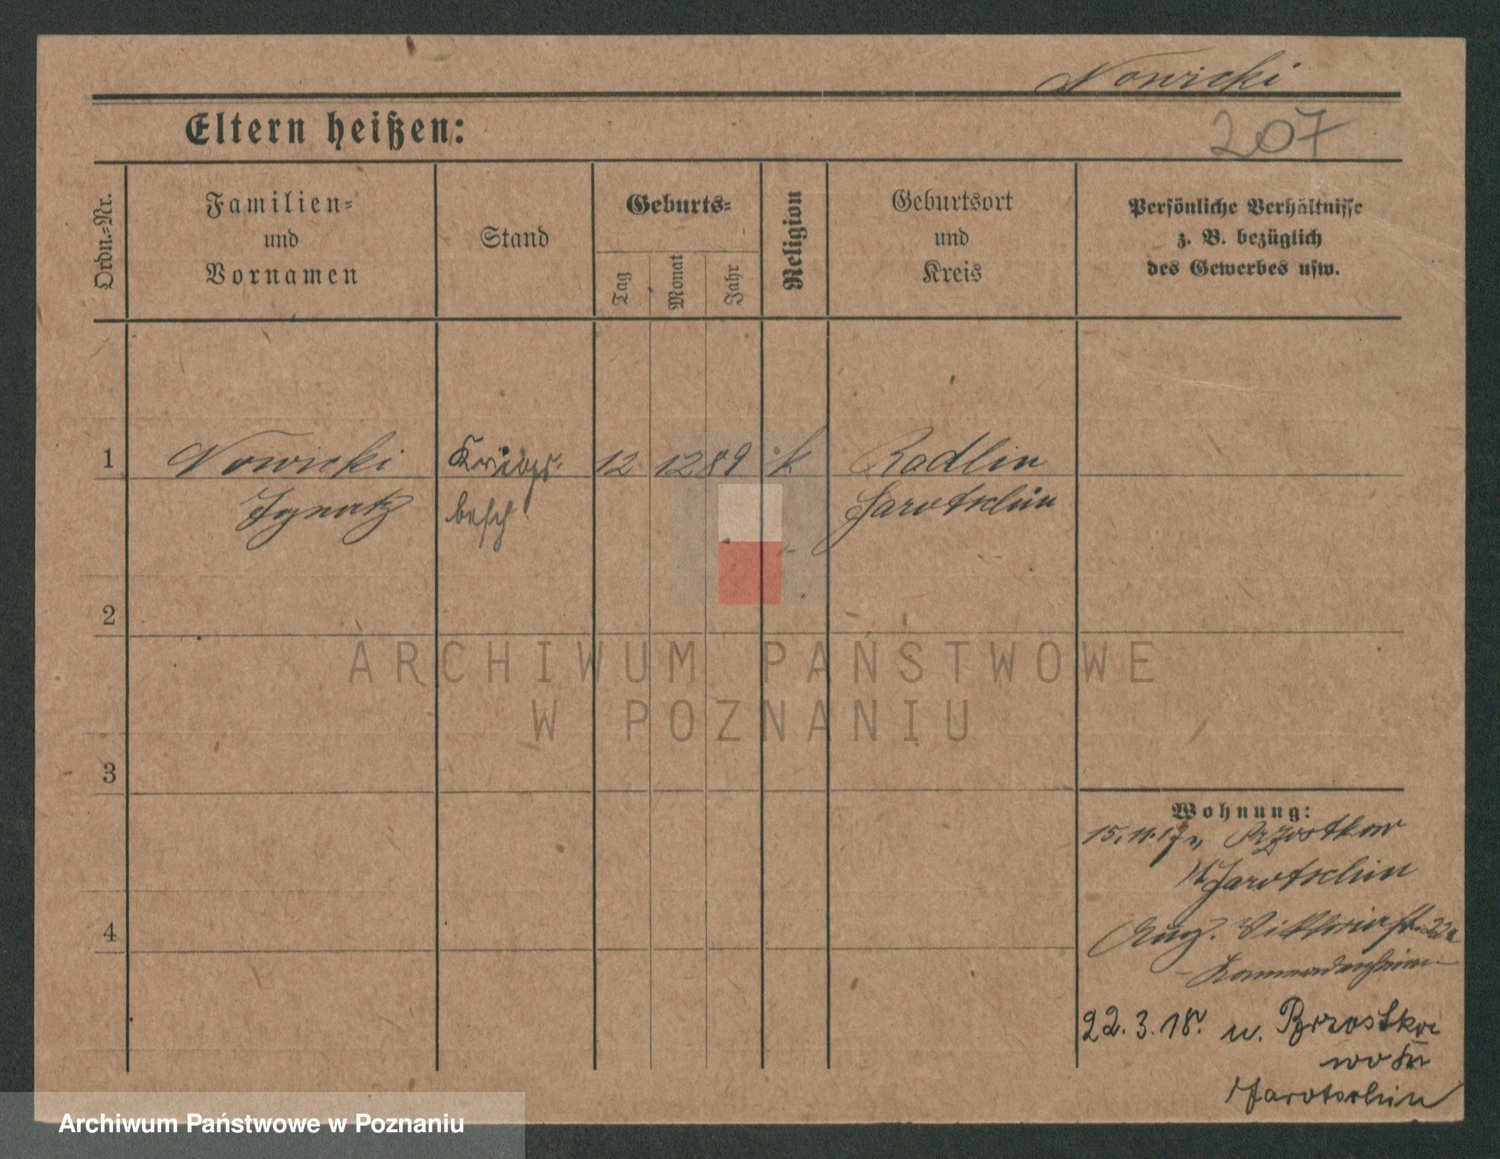 Nowicki
Eltern heißen:
207
Ordn.-Nr.
Familien-
und
Vornamen
Stand
Geburts-
Tag
Monat
Jahr
Religion
Geburtsort
und
Kreis
Persönliche Verhältnisse
z. B. bezüglich
des Gewerbes usw.
1 Nowicki Kriegs- 12 12 89 k Radlin
Ignatz besch Jarotschin
2
ARCHIWUM PAŃSTWOWE
W POZNANIU
3
Wohnung:
15.11.17 v.
Jarotschin
4
Aug. Viktoriastr. 22a
22.3.18. n. Brzostko
wo
Jarotschin
Archiwum Państwowe w Poznaniu